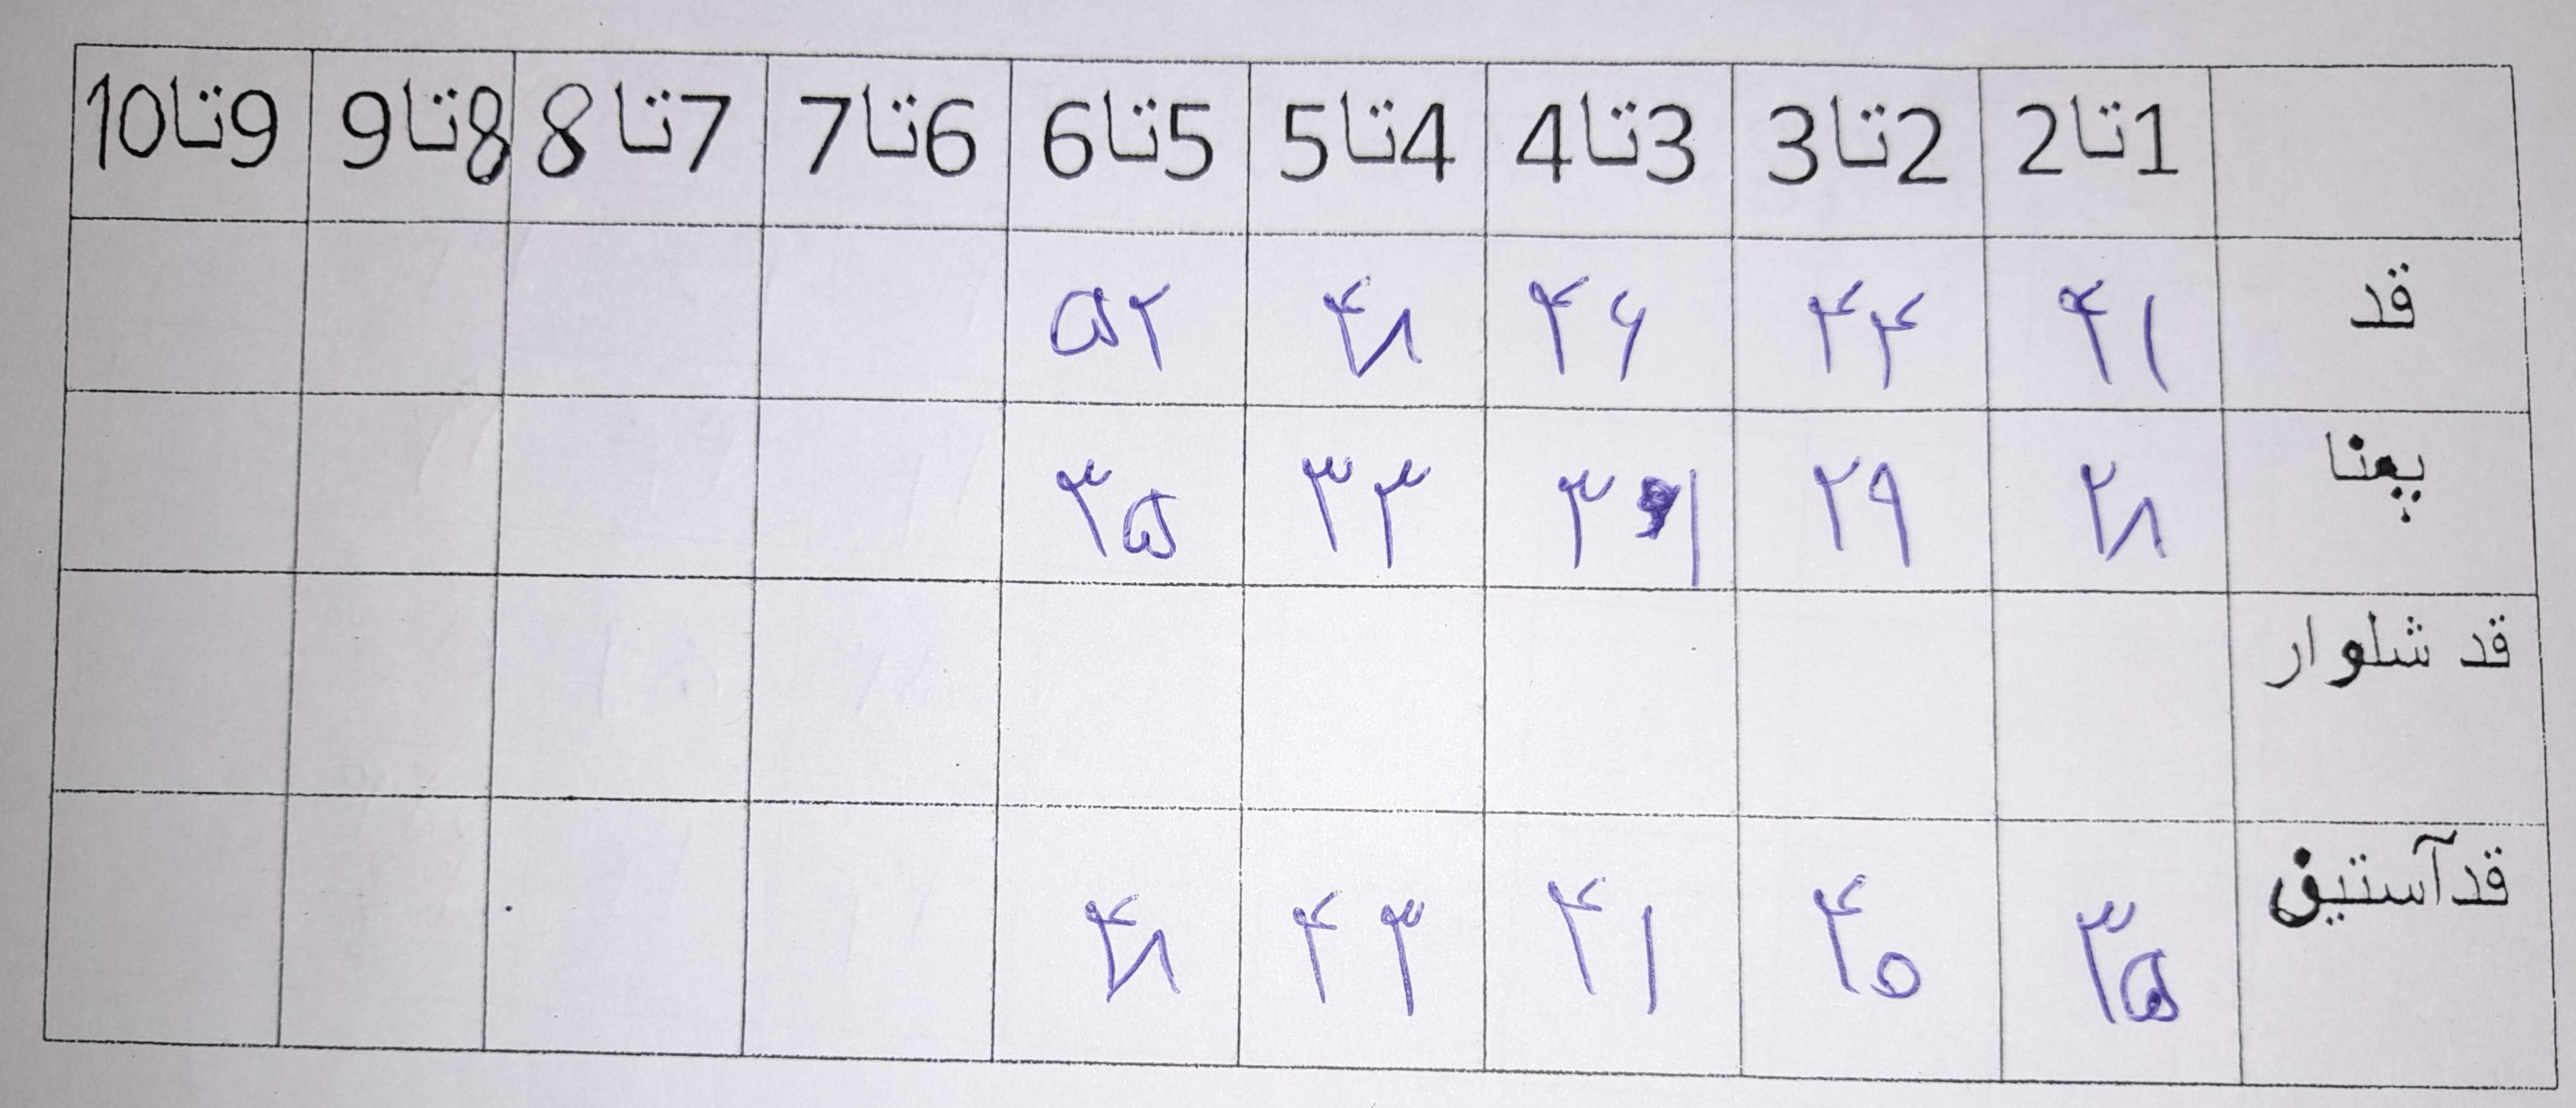 1تا2 2تا3 3تا4 4تا5 5تا6 6تا7 7تا8 8تا9 9تا10
قد ۴۱ ۴۴ ۴۶ ۴۸ ۵۲
پهنا ۲۸ ۲۹ ۳۱ ۳۳ ۳۵
قد شلوار
قدآستین ۳۵ ۴۰ ۴۱ ۴۳ ۴۸